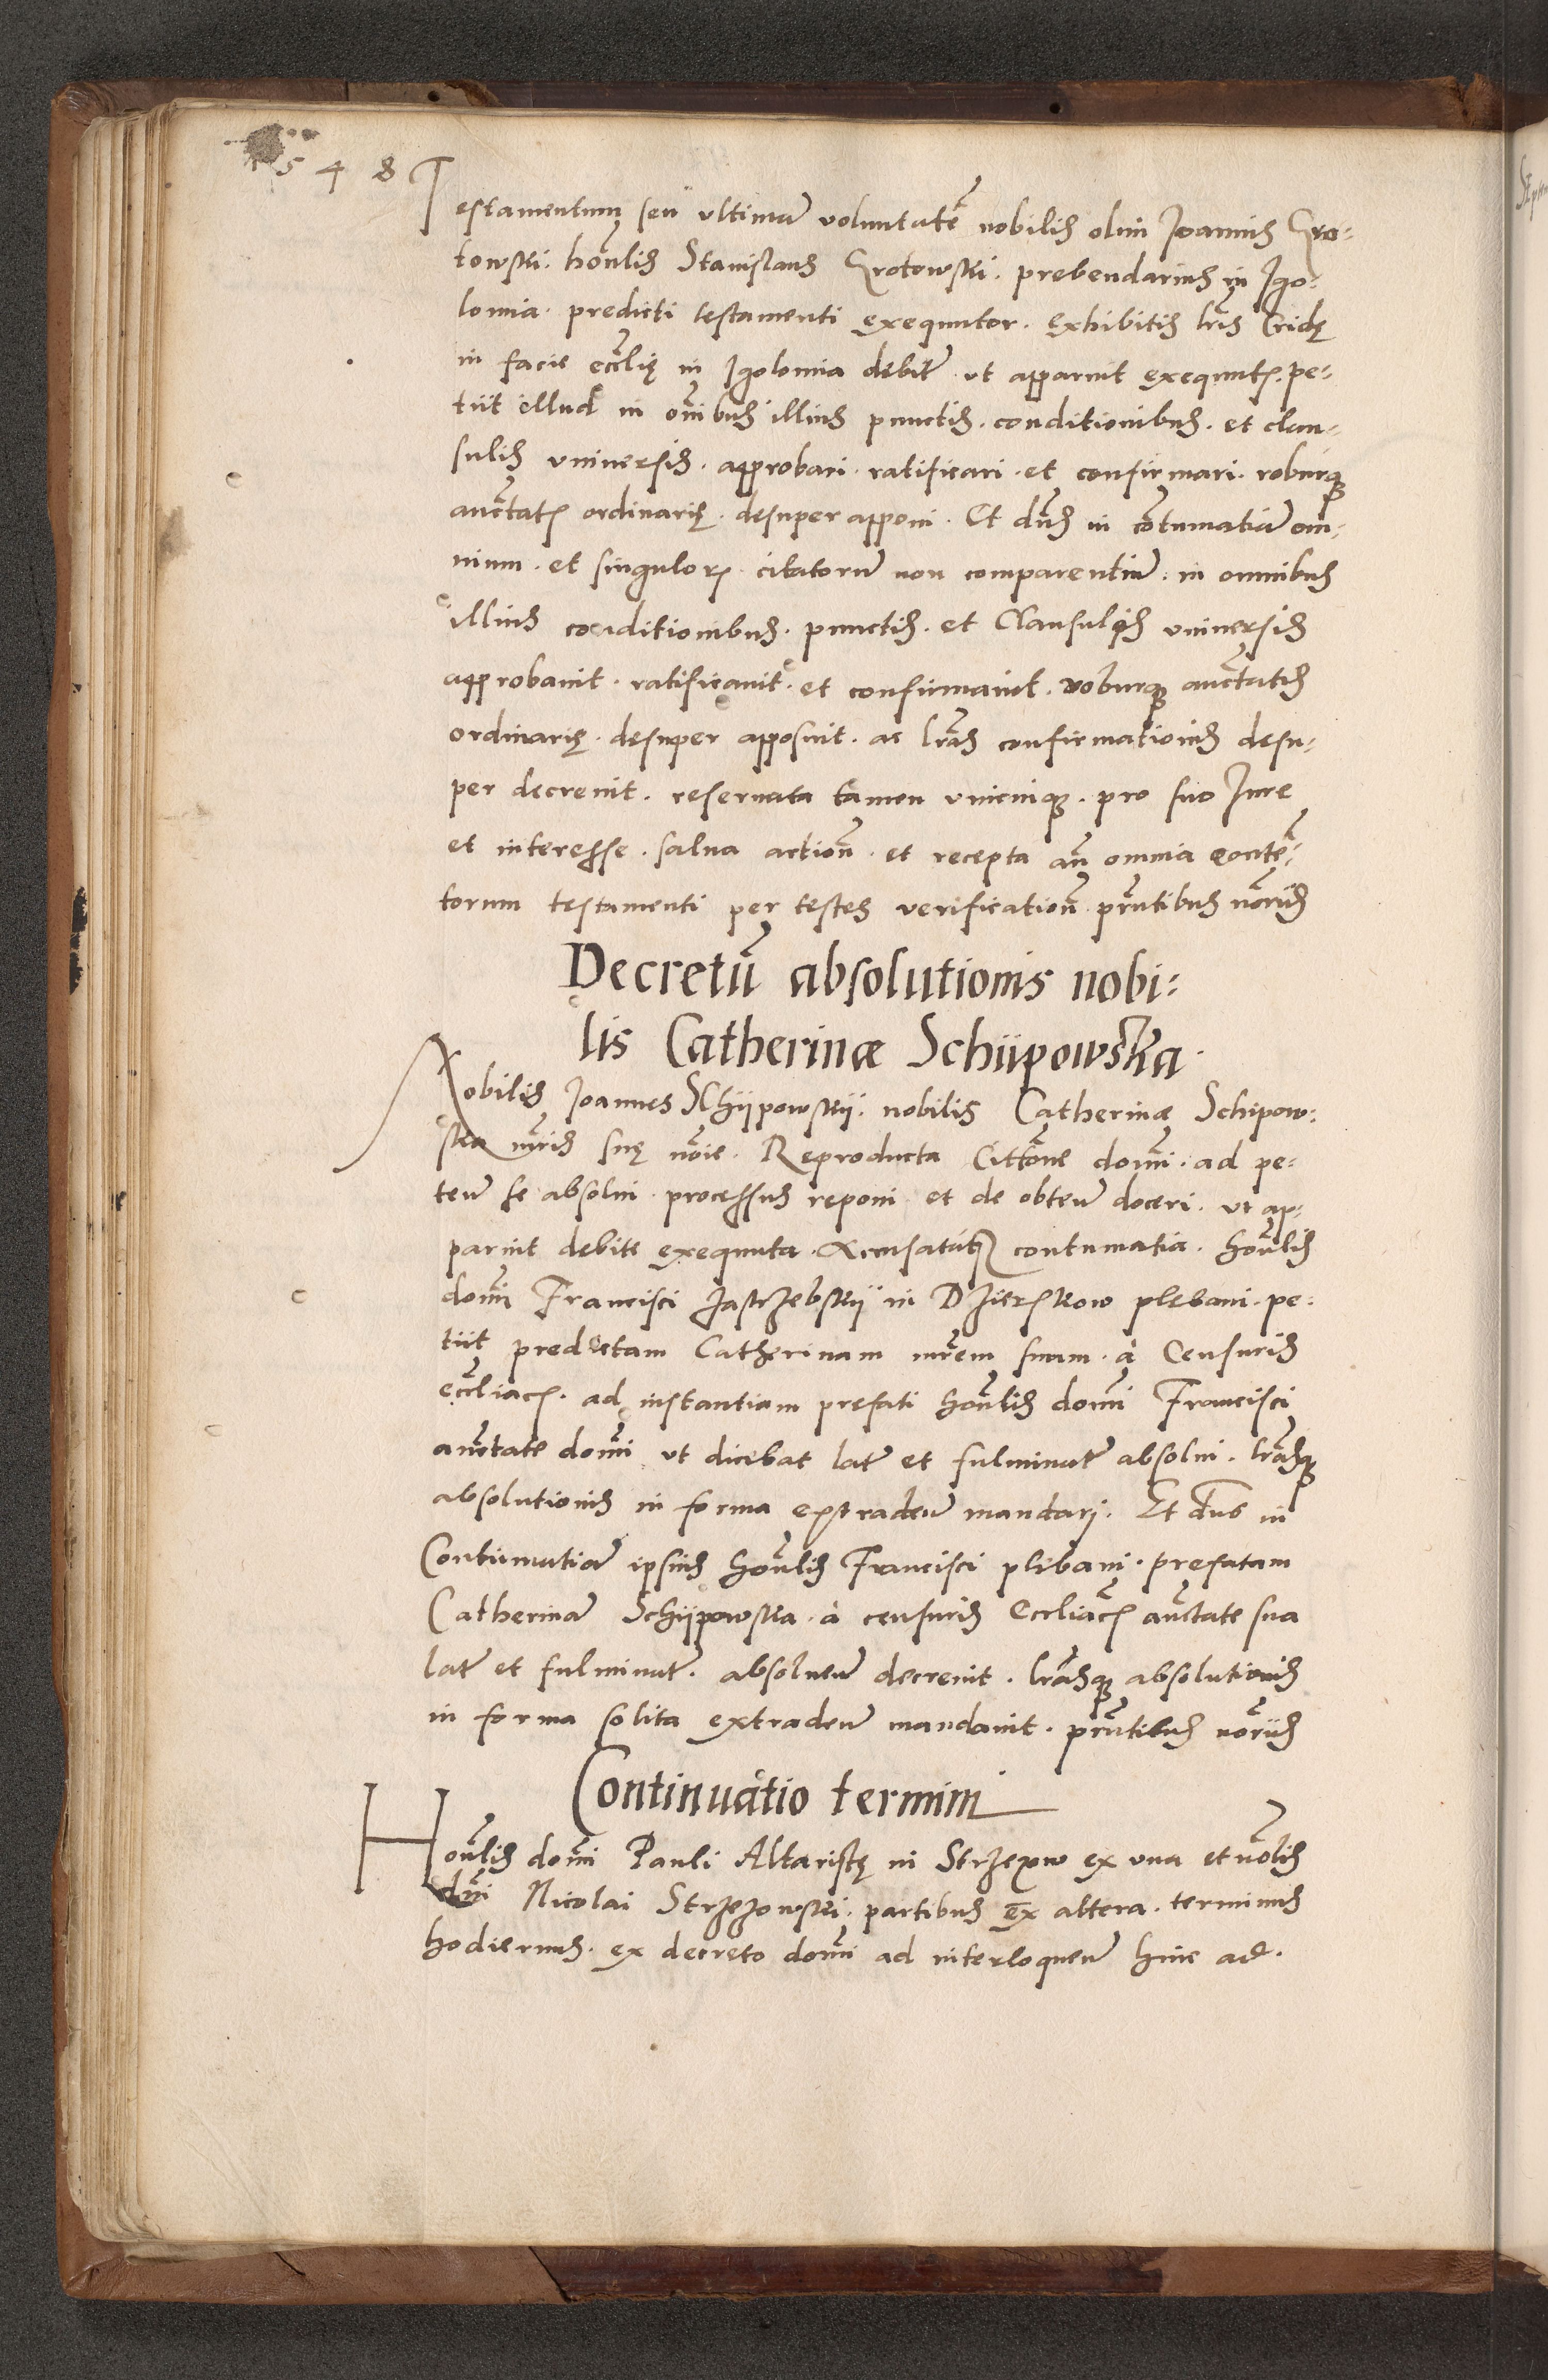 1548
Testamentum seu ultimā voluntatē nobilis olim Joannis Gro=
towski. honīlis Stanislaus Grotowski. prebendarius in Igo=
lomia. predicti testamenti exequutor. exhibitis lrīs Cridę
in facie eccīlię in Igolomia debite ut apparuit exequut. pe=
tiit illud in oībus illius punctis. conditionibus. et clau=
sulis universis. approbari. ratificari. et confirmari. roburque
auctātę ordinarię. desuper apponi. Et dnūs in cōtumatiā om=
nium. et singulorum citatorū non comparentiū. in omnibus
illius conditionibus. punctis. et Clausulis universis
approbavit. ratificavit. et confirmavit. roburque auctātis
ordinarię. desuper apposuit. ac lrās confirmationis desu=
per decrevit. reservata tamen unicuique. pro suo Jure
et interesse. salva actionē. et recepta añ omnia contē=
torum testamenti per testes verificationē. prñtibus notīis
Decretū absolutionis nobi=
lis Catherinæ Schiipowska.
Nobilis Joannes Schijpowskij. nobilis Catherinæ Schipow=
ska mrīs suę noīe. Reproducta Citōne domī. ad pe=
tēū se absolvi. processus reponi et de obteū doceri. ut ap=
paruit debite exequuta. Accusataque contumatia. honīlis
domī Francisci Jastrzebskij in Dzierskow plebani. pe=
tiit predictam Catherinam mrēm suam. à Censuris
eccīliacis. ad instantiam prefati honīlis domī Francisci
auctāte domī ut dicebat latis et fulminatis absolvi. lrāsque
absolutionis in forma extradeū mandari. Et dnūs in
Contumatiā ipsius honīlis Francisci plebani. prefatam
Catherinā Schijpowska. à censuris Eccliācis auctāte sua
latis et fulminatis. absolveū decrevit. lrāsque absolutionis
in forma solita extradeū mandavit. prñtibus notīis
Continuatio termini
Honīlis domī Pauli Altaristę in Strzezow ex una et nobīlis
dnī Nicolai Strzezowski. partibus ex altera. terminus
hodiernus. ex decreto domī ad interloqueū hinc ad.